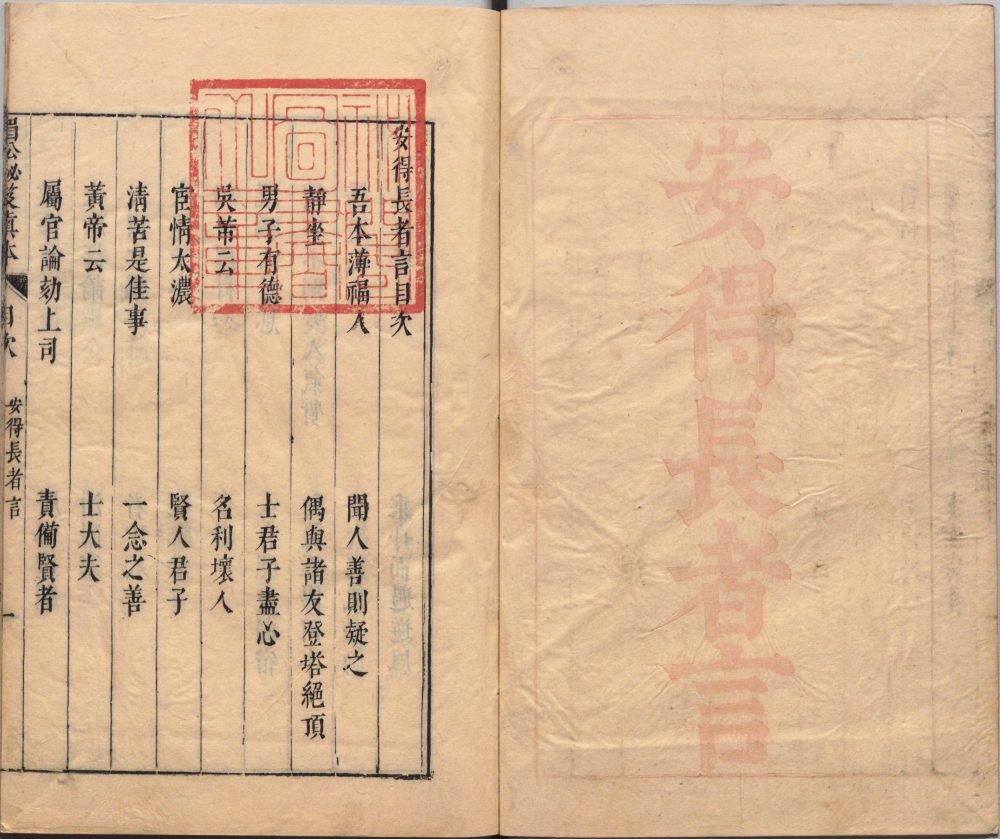 安得長者言
安得長者言目次
吾本薄福人　聞人善則疑之
靜坐　偶與諸友登塔絕頂
男子有德　士君子盡心
吳芾云　名利壞人
宦情太濃　賢人君子
清苦是佳事　一念之善
黃帝云　士大夫
屬官論劾上司　責備賢者
眉公祕笈眞本　目次　安得長者言　一